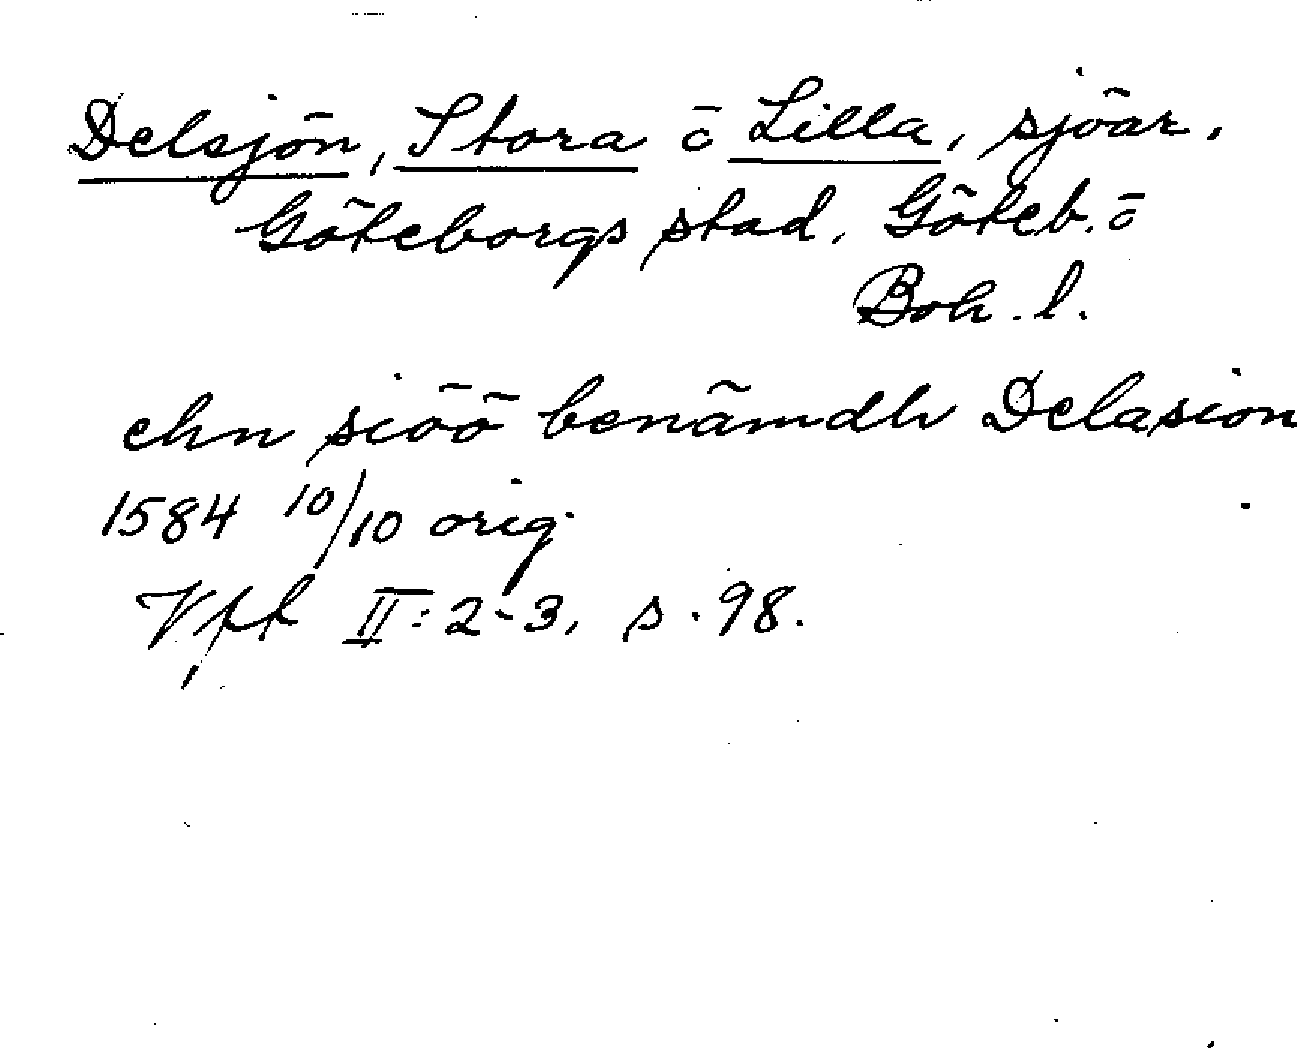 Delsjön, Stora o Lilla, sjöar,
Göteborgs stad, Göteb. o
Boh. l.
ehn siöö benämdh Delasion
1584 10/10 orig.
Vfk II:2-3, s. 98.